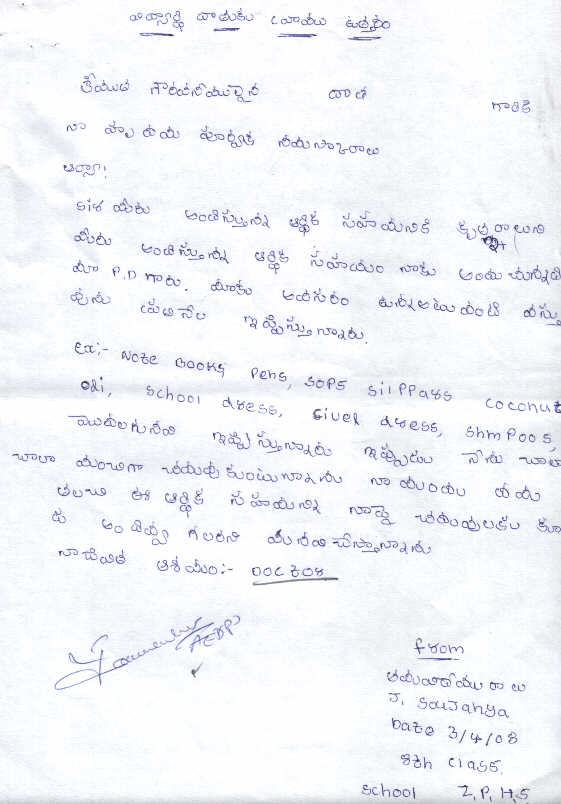 విద్యార్థి దాతకు వ్రాయు ఉత్తరం
శ్రీయుత గౌరవనీయులైన దాత గారికి
నా హృదయ పూర్వక నమస్కారాలు
ఆర్యా!
మీరు అందిస్తున్న ఆర్థిక సహయనికి కృతజ్ఞరాలుని
మీరు అందిస్తున్న ఆర్థిక సహయం నాకు అందుచున్నది
మా P.D గారు. మాకు అవసరం ఉన్నఅటువంటి వస్తు
వును ప్రతినెల ఇప్పిస్తున్నారు.
Ex:- Note Books Pens, SOPS SilPPars coconut
oli, school dress, sivel dress, shmPoos,
మొదలగునవి ఇప్పిస్తున్నారు ఇప్పుడు నేను చాల
చాలా మంచిగా చదువుకుంటున్నాను నా యందు దయ
తలచి ఈ ఆర్థిక సహయన్ని నాపై చదువులకు కూ
డ అందివ్వ గలరని మనవిచేస్తున్నాను
నాజీవిత ఆశయం:- DOCTOR
AEDP
from
J. Soujanya
Date 3/4/08
8th class.
School Z.P.H.S